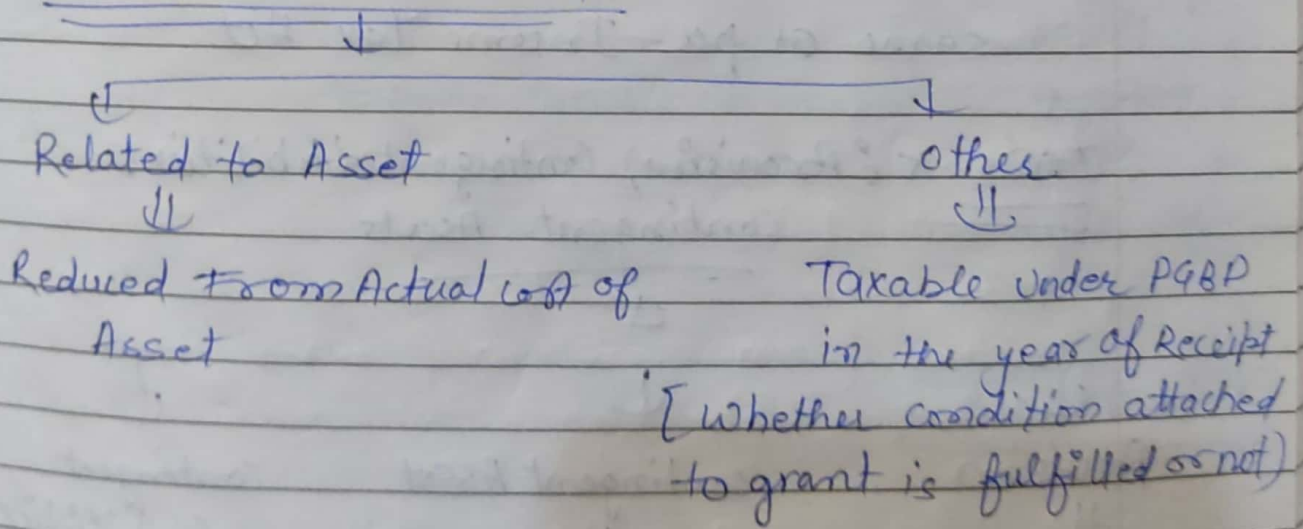 Related to Asset
Other
Reduced From Actual cost of
Asset
Taxable Under PGBP
in the year of Receipt
[Whether condition attached
to grant is fulfilled or not)